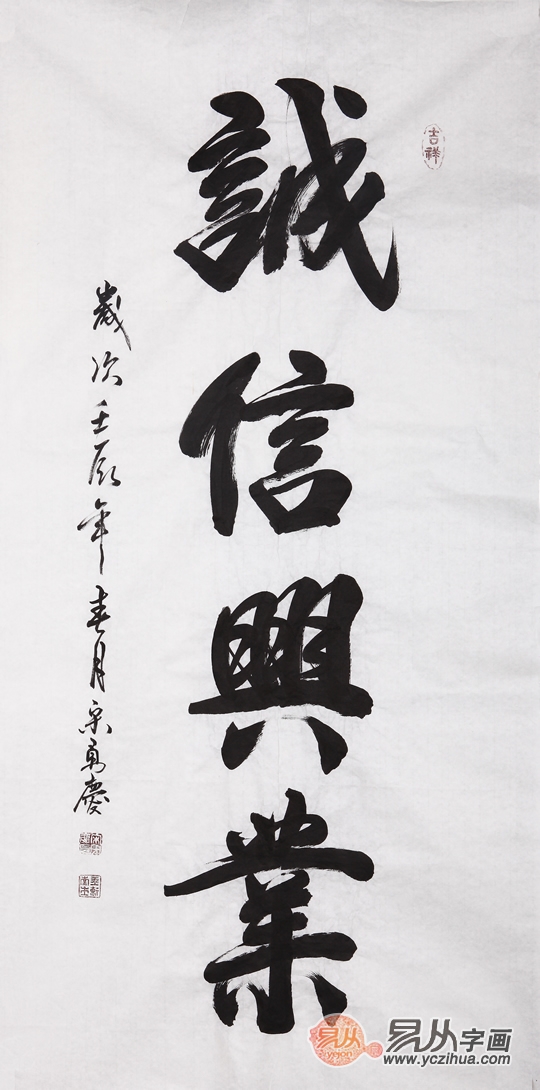 吉祥
誠信興業
歲次壬辰年春月慶
易从
易从字画
www.yczihua.com